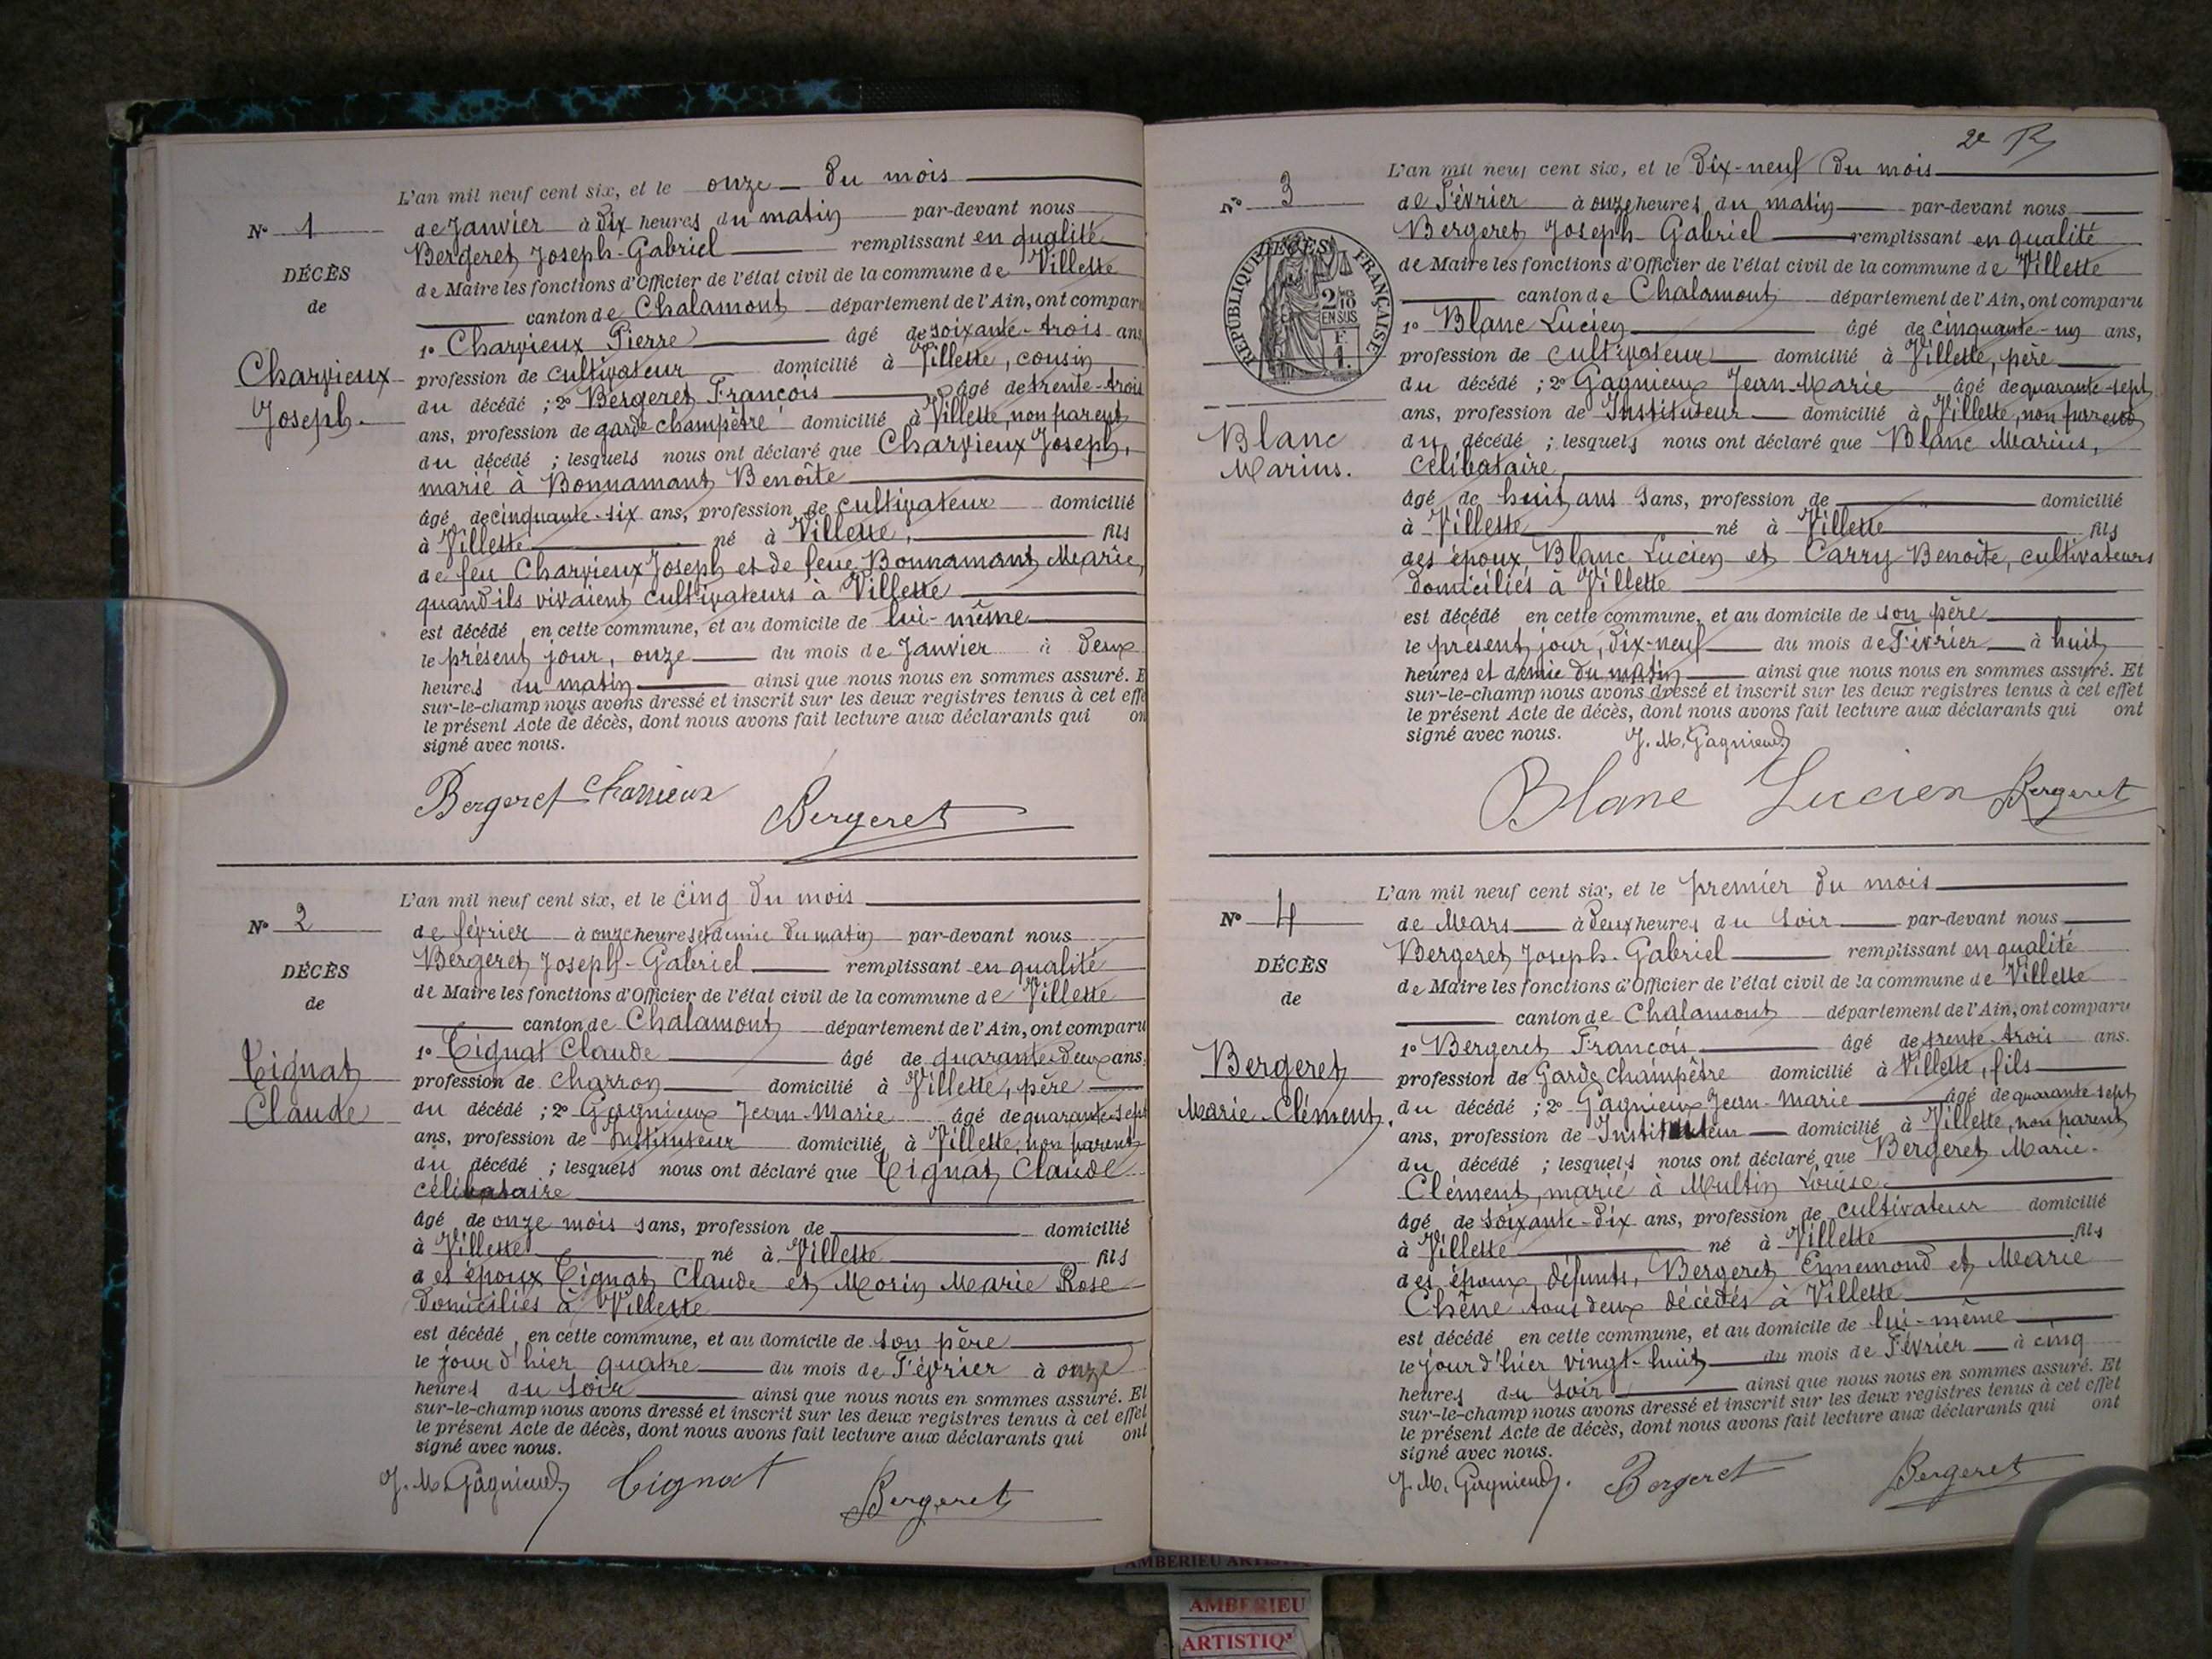 L'an mil neuf cent six, et le onze du mois
N° 1
de Janvier à dix heures du matin par-devant nous
Bergeret Joseph-Gabriel remplissant en qualité
DÉCÈS
de Maire les fonctions d'Officier de l'état civil de la commune de Villette
de
canton de Chalamont département de l'Ain, ont comparu
1° Charvieux Pierre âgé de soixante-trois ans
Charvieux
profession de cultivateur domicilié à Villette, cousin
Joseph.
du décédé ; 2° Bergeret François âgé de trente-trois
ans, profession de garde champêtre domicilié à Villette, non parent
du décédé ; lesquels nous ont déclaré que Charvieux Joseph,
marié à Bonnamant Benoîte
âgé de cinquante-six ans, profession de cultivateur domicilié
à Villette né à Villette, fils
de feu Charvieux Joseph et de feue Bonnamant Marie,
quand ils vivaient cultivateurs à Villette
est décédé en cette commune, et au domicile de lui-même
le présent jour, onze du mois de Janvier à deux
heures du matin ainsi que nous nous en sommes assuré. E
sur-le-champ nous avons dressé et inscrit sur les deux registres tenus à cet effe
le présent Acte de décès, dont nous avons fait lecture aux déclarants qui on
signé avec nous.
Bergeret Charvieux Bergeret
L'an mil neuf cent six, et le cinq du mois
N° 2
de février à onze heures et demie du matin par-devant nous
Bergeret Joseph-Gabriel remplissant en qualité
DÉCÈS
de Maire les fonctions d'Officier de l'état civil de la commune de Villette
de
canton de Chalamont département de l'Ain, ont comparu
1° Tignat Claude âgé de quarante-deux ans.
Tignat
profession de charron domicilié à Villette, père
Claude
du décédé ; 2° Gagnieux Jean-Marie âgé de quarante-sept
ans, profession de Instituteur domicilié à Villette, non parent
du décédé ; lesquels nous ont déclaré que Tignat Claude
célibataire
âgé de onze mois sans, profession de domicilié
à Villette né à Villette fils
des époux Tignat Claude et Morin Marie Rose
domiciliés à Villette
est décédé en cette commune, et au domicile de son père
le jour d'hier quatre du mois de Février à onze
heures du soir ainsi que nous nous en sommes assuré. Et
sur-le-champ nous avons dressé et inscrit sur les deux registres tenus à cet effet
le présent Acte de décès, dont nous avons fait lecture aux déclarants qui ont
signé avec nous.
J. M. Gagnieux Tignat Bergeret
2e
L'an mil neuf cent six, et le dix-neuf du mois
N° 3
de Février à onze heures du matin par-devant nous
Bergeret Joseph-Gabriel remplissant en qualité
RÉPUBLIQUE FRANÇAISE
DÉCÈS
2/10
EN SUS
F.
1.
de Maire les fonctions d'Officier de l'état civil de la commune de Villette
canton de Chalamont département de l'Ain, ont comparu
1° Blanc Lucien âgé de cinquante-un ans,
profession de cultivateur domicilié à Villette, père
du décédé ; 2° Gagnieux Jean-Marie âgé de quarante-sept
ans, profession de Instituteur domicilié à Villette, non parent
Blanc
du décédé ; lesquels nous ont déclaré que Blanc Marius,
Marius.
célibataire
âgé de huit ans sans, profession de domicilié
à Villette né à Villette fils
des époux Blanc Lucien et Carry Benoîte, cultivateurs
domiciliés à Villette
est décédé en cette commune, et au domicile de son père
le présent jour, dix-neuf du mois de Février à huit
heures et demie du matin ainsi que nous nous en sommes assuré. Et
sur-le-champ nous avons dressé et inscrit sur les deux registres tenus à cet effet
le présent Acte de décès, dont nous avons fait lecture aux déclarants qui ont
signé avec nous.
J. M. Gagnieux
Blanc Lucien Bergeret
L'an mil neuf cent six, et le premier du mois
N° 4
de Mars à deux heures du soir par-devant nous
Bergeret Joseph-Gabriel remplissant en qualité
DÉCÈS
de Maire les fonctions d'Officier de l'état civil de la commune de Villette
de
canton de Chalamont département de l'Ain, ont comparu
1° Bergeret François âgé de trente-trois ans.
Bergeret
profession de Garde champêtre domicilié à Villette, fils
Marie-Clément.
du décédé ; 2° Gagnieux Jean-Marie âgé de quarante-sept
ans, profession de Instituteur domicilié à Villette, non parent
du décédé ; lesquels nous ont déclaré que Bergeret Marie-
Clément, marié à Multin Louise
âgé de soixante-dix ans, profession de cultivateur domicilié
à Villette né à Villette fils
des époux défunts, Bergeret Ennemond et Marie
Chêne tous deux décédés à Villette
est décédé en cette commune, et au domicile de lui-même
le jour d'hier vingt-huit du mois de Février à cinq
heures du soir ainsi que nous nous en sommes assuré. Et
sur-le-champ nous avons dressé et inscrit sur les deux registres tenus à cet effet
le présent Acte de décès, dont nous avons fait lecture aux déclarants qui ont
signé avec nous.
J. M. Gagnieux. Bergeret Bergeret
AMBERIEU
AMBERIEU
ARTISTIQ